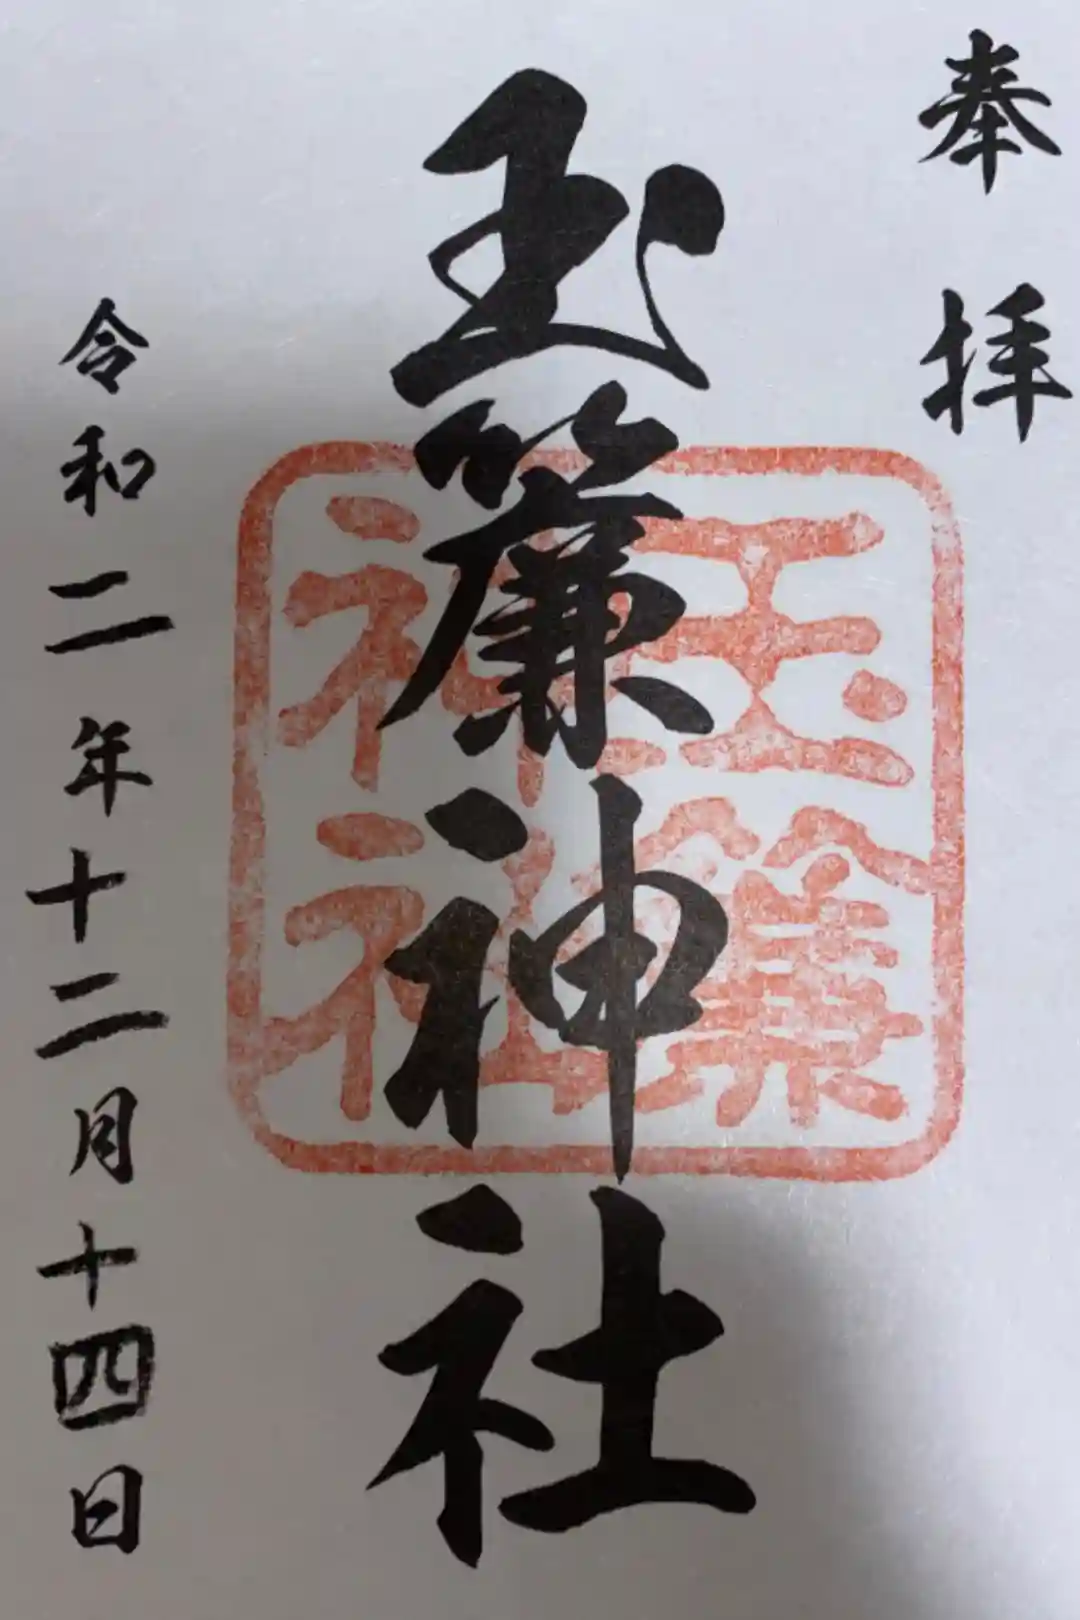 奉拝
玉簾神社
玉簾
神社
令和二年十二月十四日